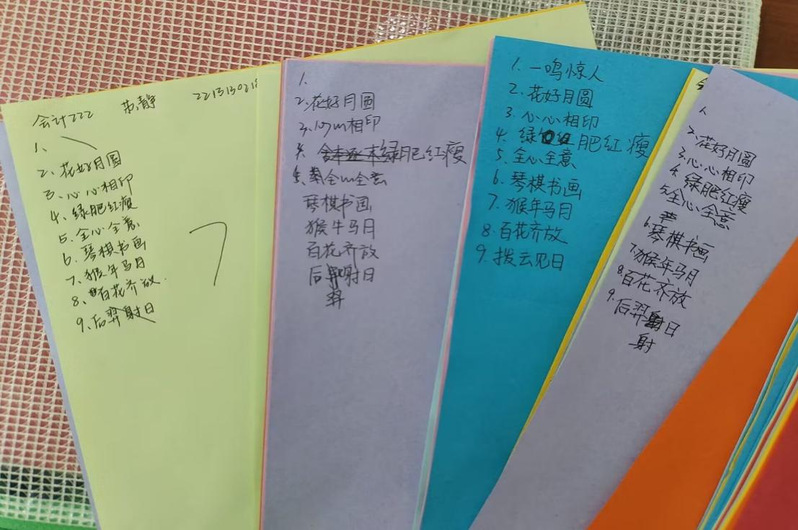 会计222 221313021
1.
2. 花好月圆
3. 心心相印
4. 绿肥红瘦
5. 全心全意
6. 琴棋书画
7. 猴年马月
8. 百花齐放.
9. 后羿射日
7
1.
2. 花好月圆
3. 心心相印
4. 绿肥红瘦
5. 全心全意
琴棋书画
猴年马月
百花齐放
后射日
羿
1. 一鸣惊人
2. 花好月圆
3. 心心相印
4. 绿肥红瘦
5. 全心全意
6. 琴棋书画
7. 猴年马月
8. 百花齐放
9. 拨云见日
1.
2. 花好月圆
3. 心心相印
4. 绿肥红瘦
5. 全心全意
6. 琴棋书画
7. 猴年马月
8. 百花齐放
9. 后羿日
射